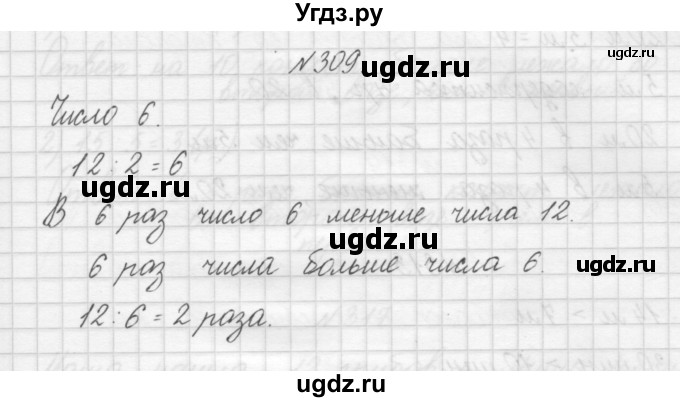 Угдз.ру
№309
ugdz.ru
ugdz.ru
Число 6.
12:2=6
ugdz.ru
В 6 раз число 6 меньше числа 12.
ugdz.ru
6 раз числа больше числа 6.
ugdz.ru
12:6=2 раза.
ugdz.ru
ugdz.ru